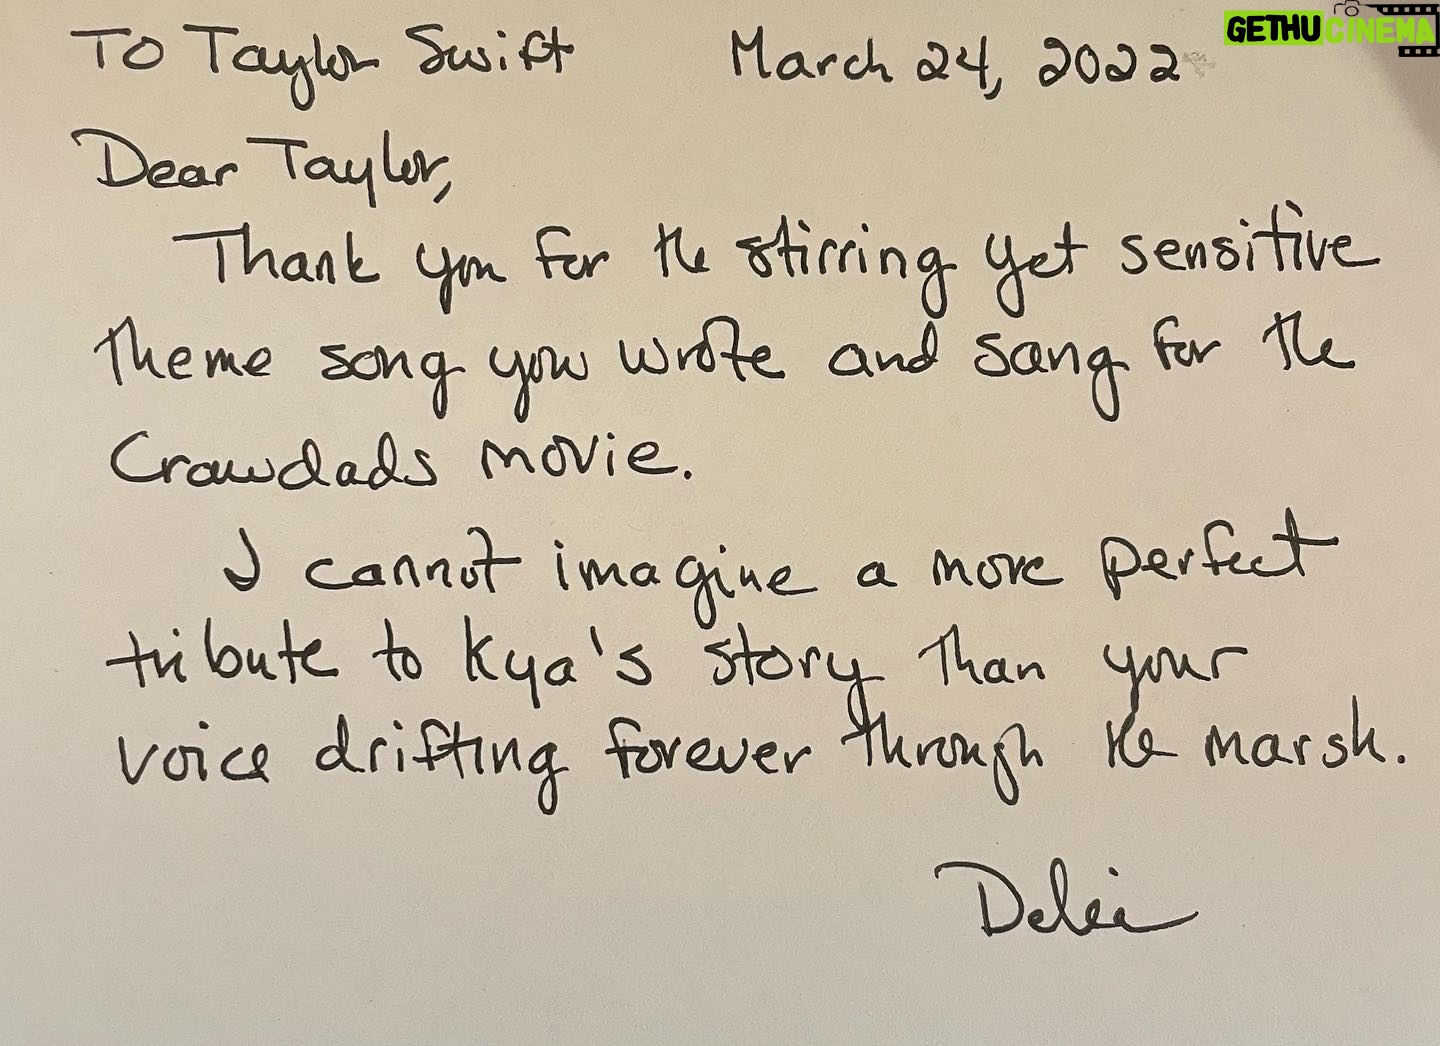 GETHUCINEMA
To Taylor Swift March 24, 2022
Dear Taylor,
Thank you for the stirring yet sensitive
theme song you wrote and sang for the
Crawdads movie.
I cannot imagine a more perfect
tribute to Kya's story than your
voice drifting forever through the marsh.
Delia